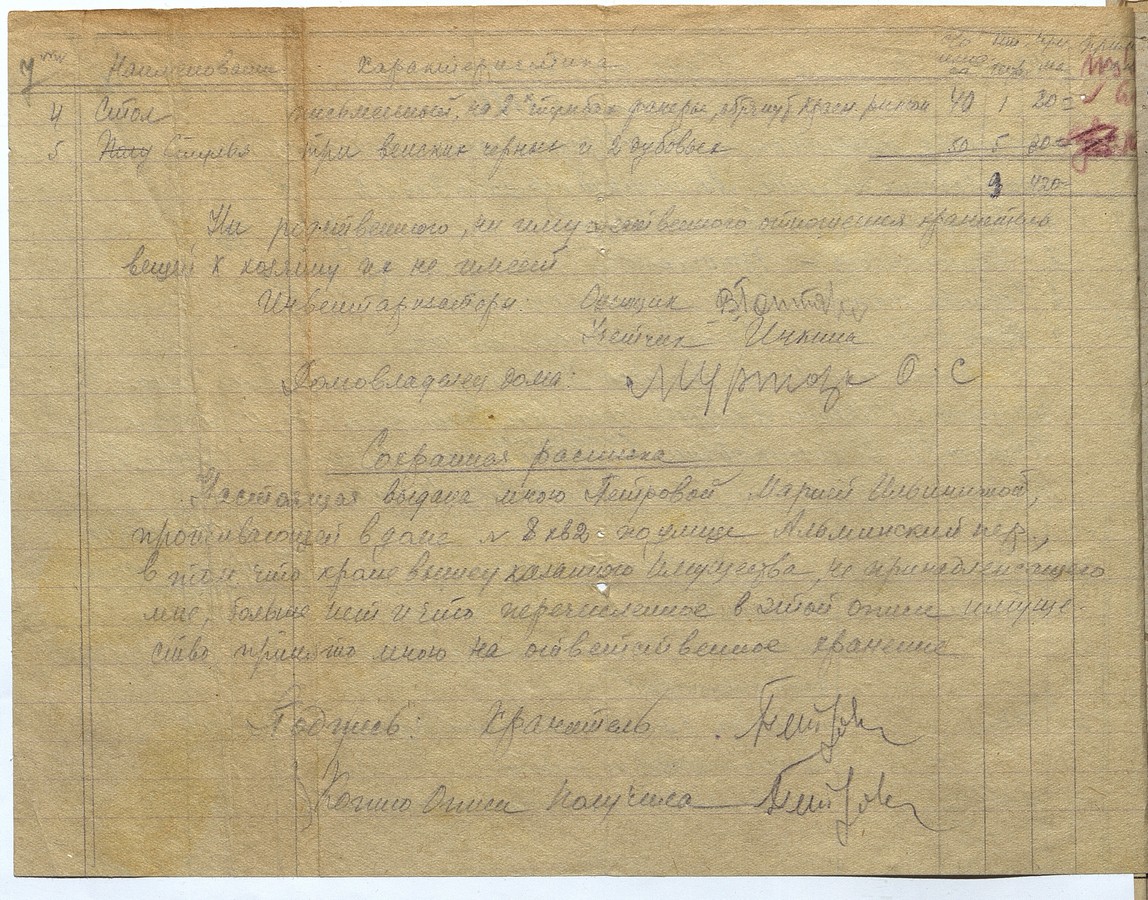 Наименование Характеристика
4 Стол письменный, на 2х тумбах фанеры, обтянут красн. 40 1 20=
5 Стулья три венских черных и 2 дубовых 50 5 20=
9 420
Ни родственного, ни имущественного отношения хранитель
вещей к хозяину их не имеет
Инвентаризаторы: Оценщик
Учетчик
Домовладелец дома: О. С
Сохранная расписка
Настоящая выдана мною Петровой Марией Ильинишной,
проживающей в доме № 8 кв 2 по улице Альминский пер.,
в том, что кроме вышеуказанного имущества, не принадлежащего
мне, больше нет и что перечисленное в этой описи имуще-
ство принято мною на ответственное хранение
Подпись: Хранитель Петрова
Копию описи получила Петрова